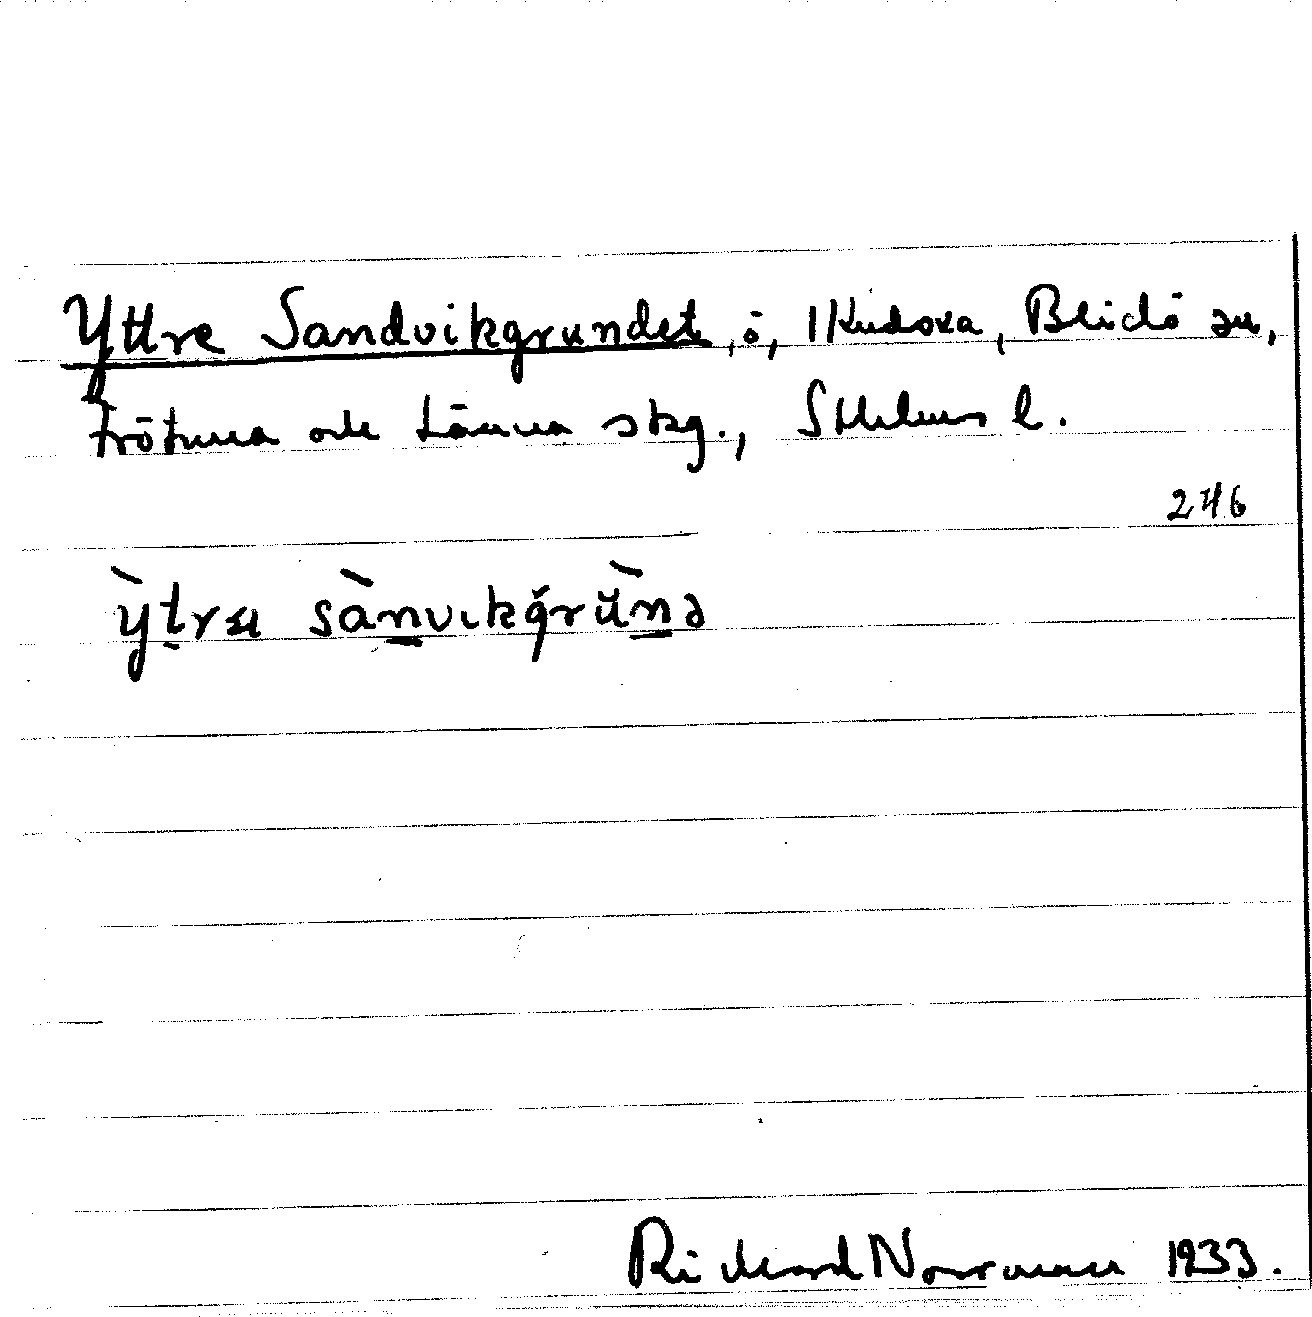 Yttre Sandvikgrundet, ö, Blidö sn,
Frötuna och Länna skg., Sthlms l.
246
ỳtra sànvikgrùnə
Rickard Norrman 1933.